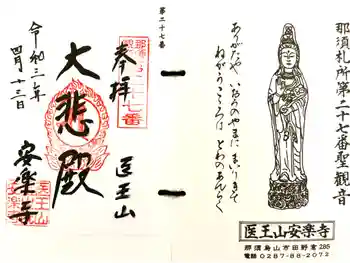 那須札所第二十七番聖観音
ありがたや いおうのやまに まいりきて
ねがうこころは とわのあんらく
医王山安楽寺
那須烏山市田野倉285
電話 0287-88-2072
第二十七番
奉拝
医王山
大悲殿
令和三年
四月十三日
安楽寺